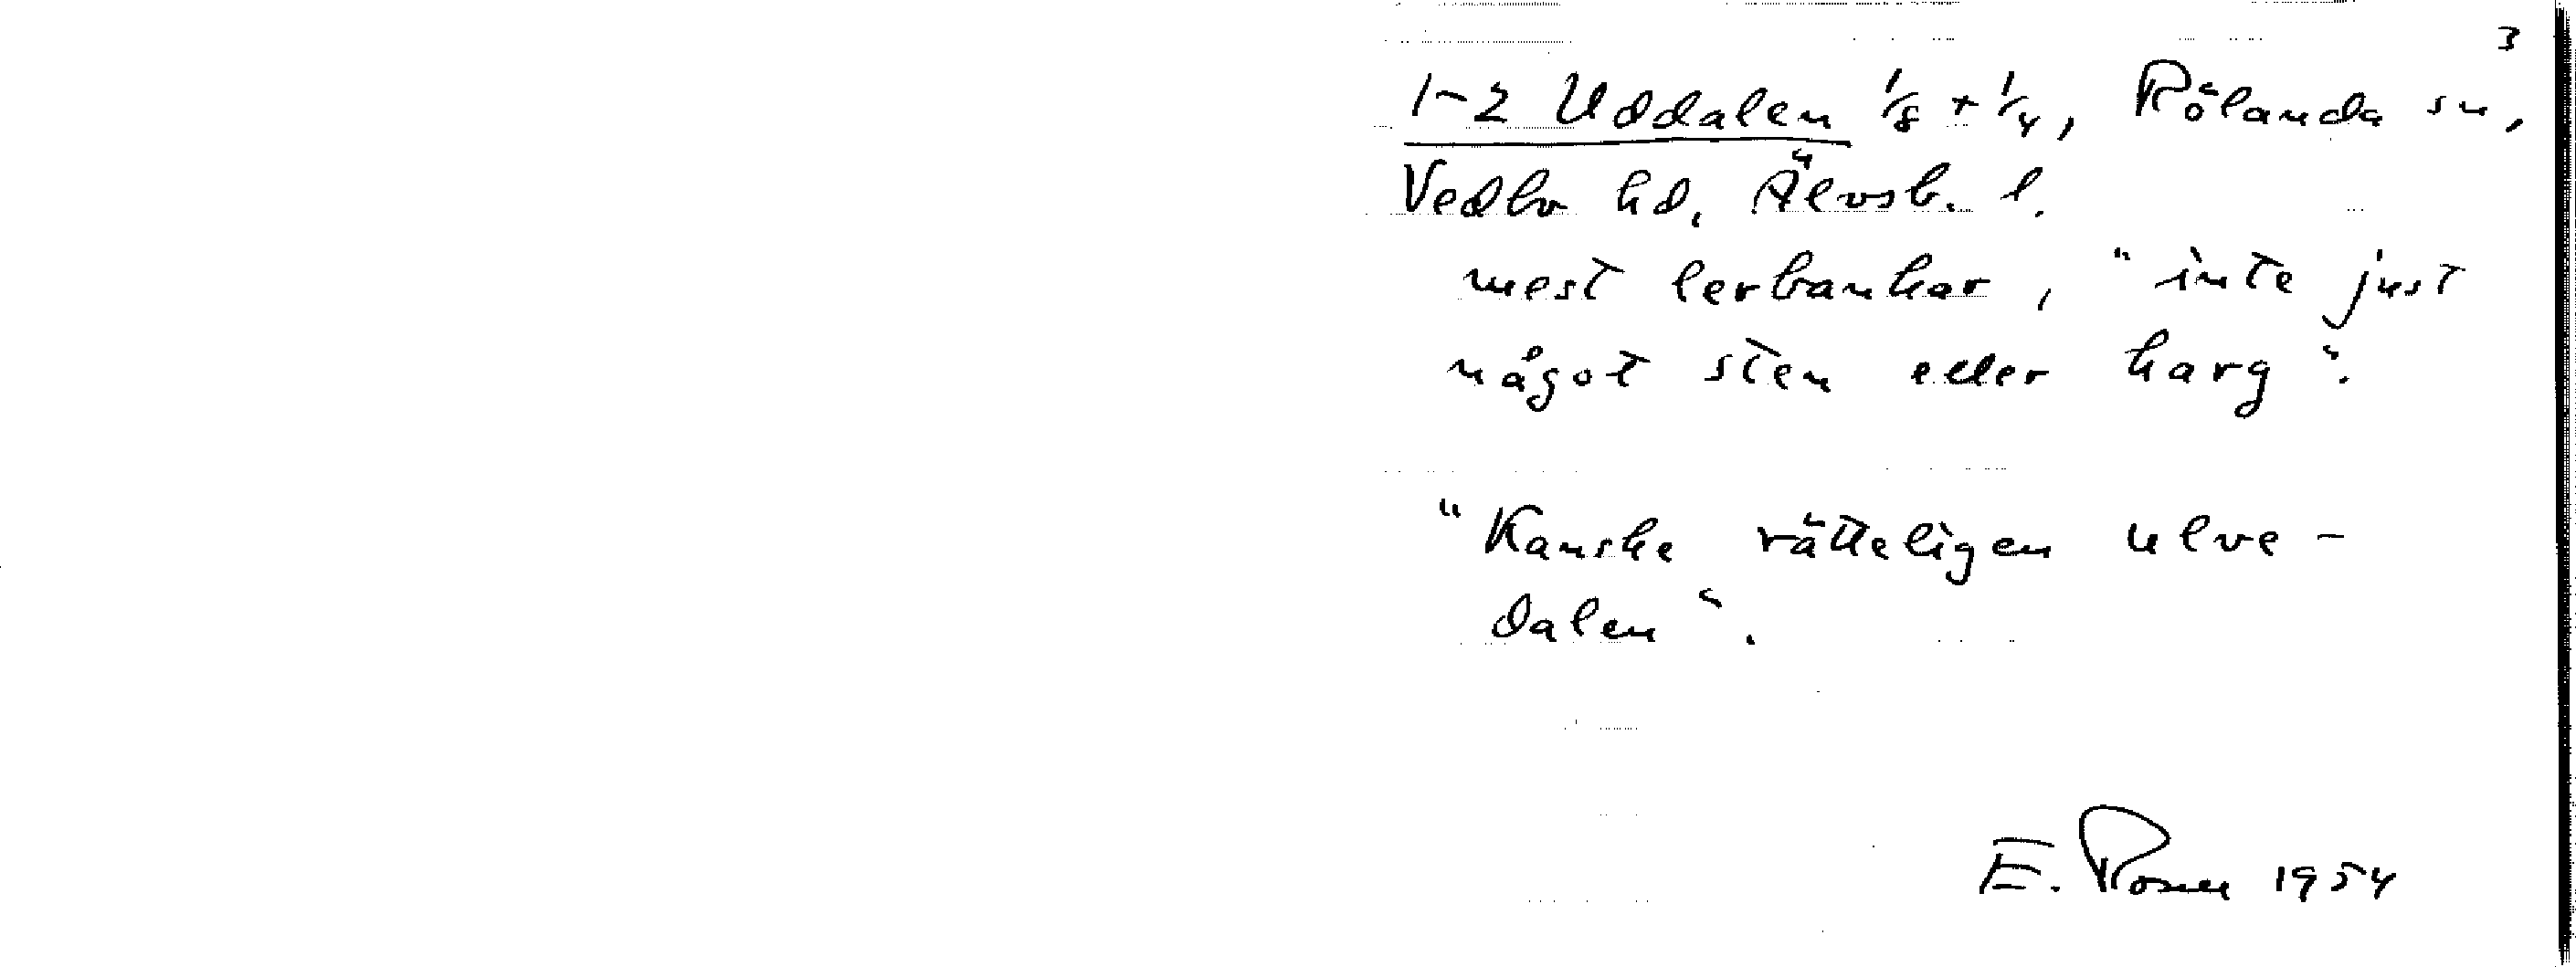 3
1-2 Uddalen 1/8 + 1/4, Rölanda sn,
Vedbo hd, Älvsb. l.
mest lerbankar, "inte just
något sten eller harg".
"Kanske rätteligen ulve-
dalen".
E. Rosell 1954